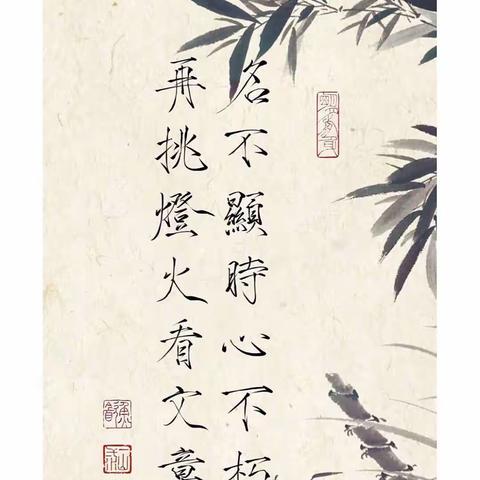 名不顯時心不朽
再挑燈火看文章